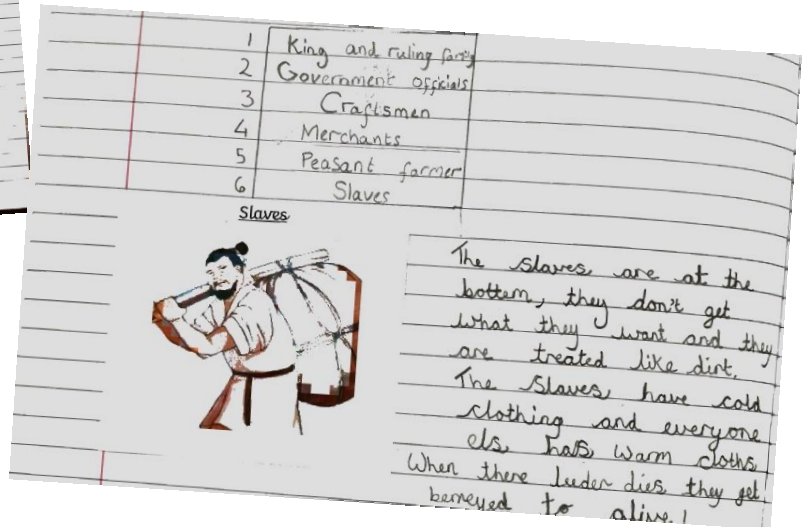 1 King and ruling family
2 Government officials
3 Craftsmen
4 Merchants
5 Peasant farmer
6 Slaves
Slaves
The slaves are at the
bottem, they don't get
what they want and they
are treated like dirt.
The slaves have cold
clothing and everyone
els has warm cloths
When there leeder dies they get
to alive!